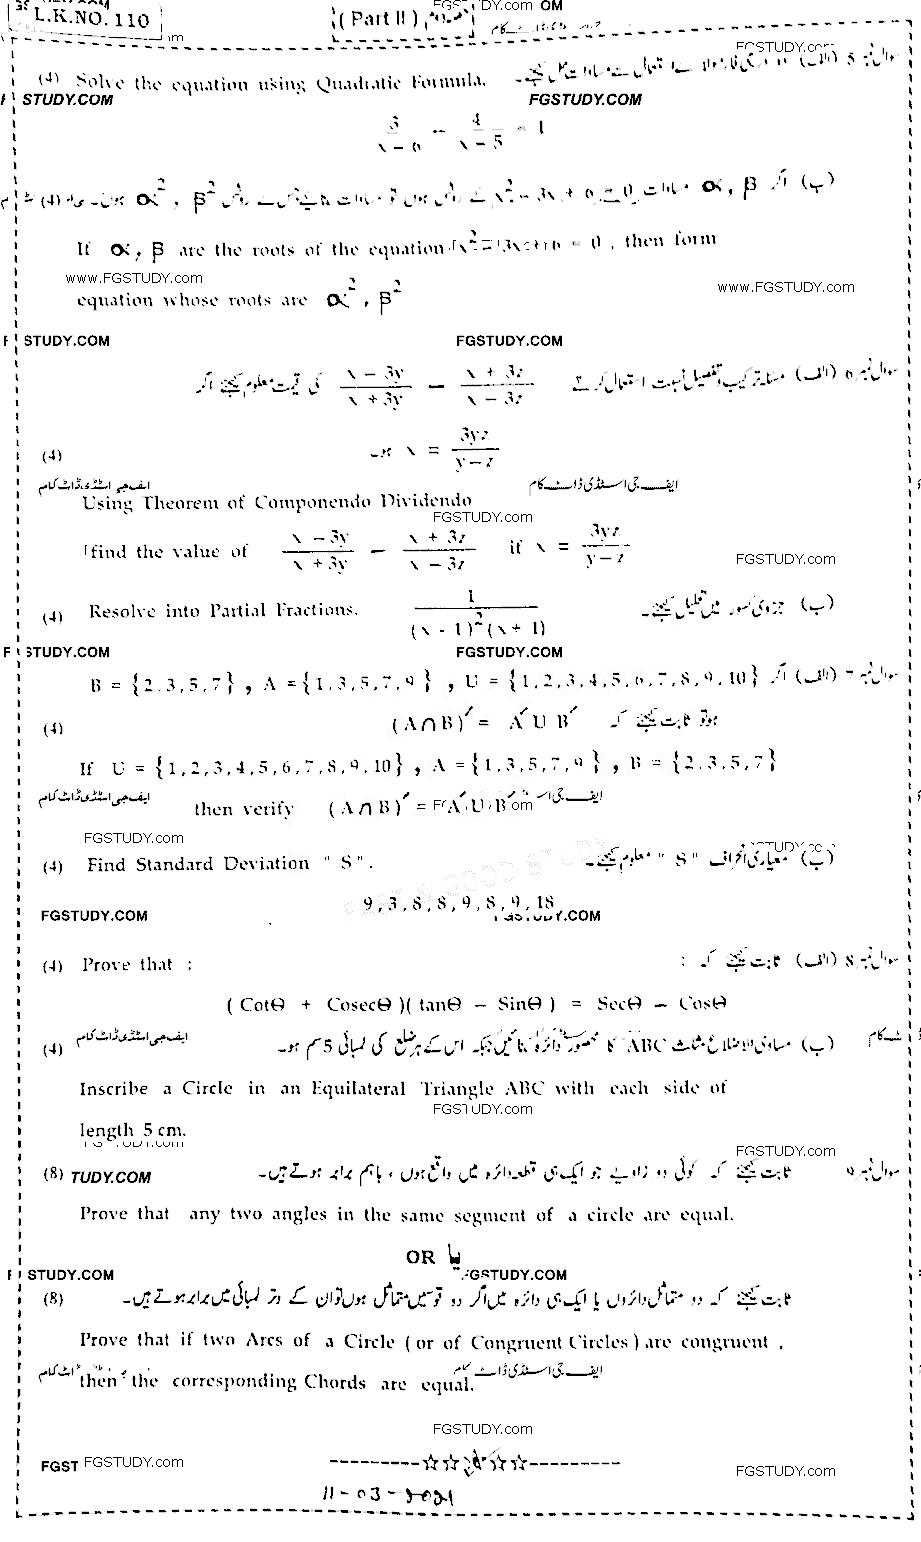 L.K.NO. 110
( Part II )
سوال نمبر 5 (الف)
(4) Solve the equation using Quadratic Formula.
3/(x − 6) − 4/(x − 5) = 1
(ب) اگر α , β مساوات x² − 3x + 6 = 0 کے روٹس ہوں تو مساوات بنائیے جس کے روٹس α² , β² ہوں۔ (4)
If α, β are the roots of the equation x² − 3x + 6 = 0 , then form
www.FGSTUDY.com www.FGSTUDY.com
equation whose roots are α² , β²
STUDY.COM FGSTUDY.COM
سوال نمبر 6 (الف) مسئلہ ترکیب و تفصیل نسبت استعمال کرتے (x + 3z)/(x − 3z) − (x − 3y)/(x + 3y) کی قیمت معلوم کیجئے اگر
(4) x = 3yz/(y−z) ہو۔
ایف جی اسٹڈی ڈاٹ کام ایف جی اسٹڈی ڈاٹ کام
Using Theorem of Componendo Dividendo
FGSTUDY.com
find the value of (x − 3y)/(x + 3y) − (x + 3z)/(x − 3z) if x = 3yz/(y−z)
FGSTUDY.com
(4) Resolve into Partial Fractions. 1/((x - 1)²(x + 1)) (ب) جزوی کسور میں تحلیل کیجئے۔
STUDY.COM FGSTUDY.COM
سوال نمبر 7 (الف) اگر B = {2,3,5,7} , A = {1,3,5,7,9} , U = {1,2,3,4,5,6,7,8,9,10}
(4) (A∩B)′ = A′ U B′ ہو تو ثابت کیجئے کہ
If U = {1,2,3,4,5,6,7,8,9,10} , A = {1,3,5,7,9} , B = {2,3,5,7}
then verify (A∩B)′ = A′ U B′
FGSTUDY.com
(4) Find Standard Deviation " S ". (ب) معیاری انحراف " S " معلوم کیجئے۔
9, 3, 8, 8, 9, 8, 9, 18
FGSTUDY.COM
(4) Prove that : سوال نمبر 8 (الف) ثابت کیجئے کہ :
( Cotθ + Cosecθ )( tanθ − Sinθ ) = Secθ − Cosθ
(4) (ب) مساوی الاضلاع مثلث ABC کا محصور دائرہ بنائیں جبکہ اس کے ہر ضلع کی لمبائی 5 سم ہو۔
Inscribe a Circle in an Equilateral Triangle ABC with each side of
FGSTUDY.com
length 5 cm.
FGSTUDY.com
(8) TUDY.COM سوال نمبر 9 ثابت کیجئے کہ کوئی دو زاویے جو ایک ہی قطعہ دائرہ میں واقع ہوں ، باہم برابر ہوتے ہیں۔
Prove that any two angles in the same segment of a circle are equal.
OR یا
STUDY.COM
(8) ثابت کیجئے کہ دو متماثل دائروں یا ایک ہی دائرہ میں اگر دو قوسیں متماثل ہوں تو ان کے وتر لمبائی میں برابر ہوتے ہیں۔
Prove that if two Arcs of a Circle ( or of Congruent Circles ) are congruent ,
then the corresponding Chords are equal.
FGSTUDY.com
FGST FGSTUDY.com ---------☆☆☆☆☆--------- FGSTUDY.com
11-03-2021